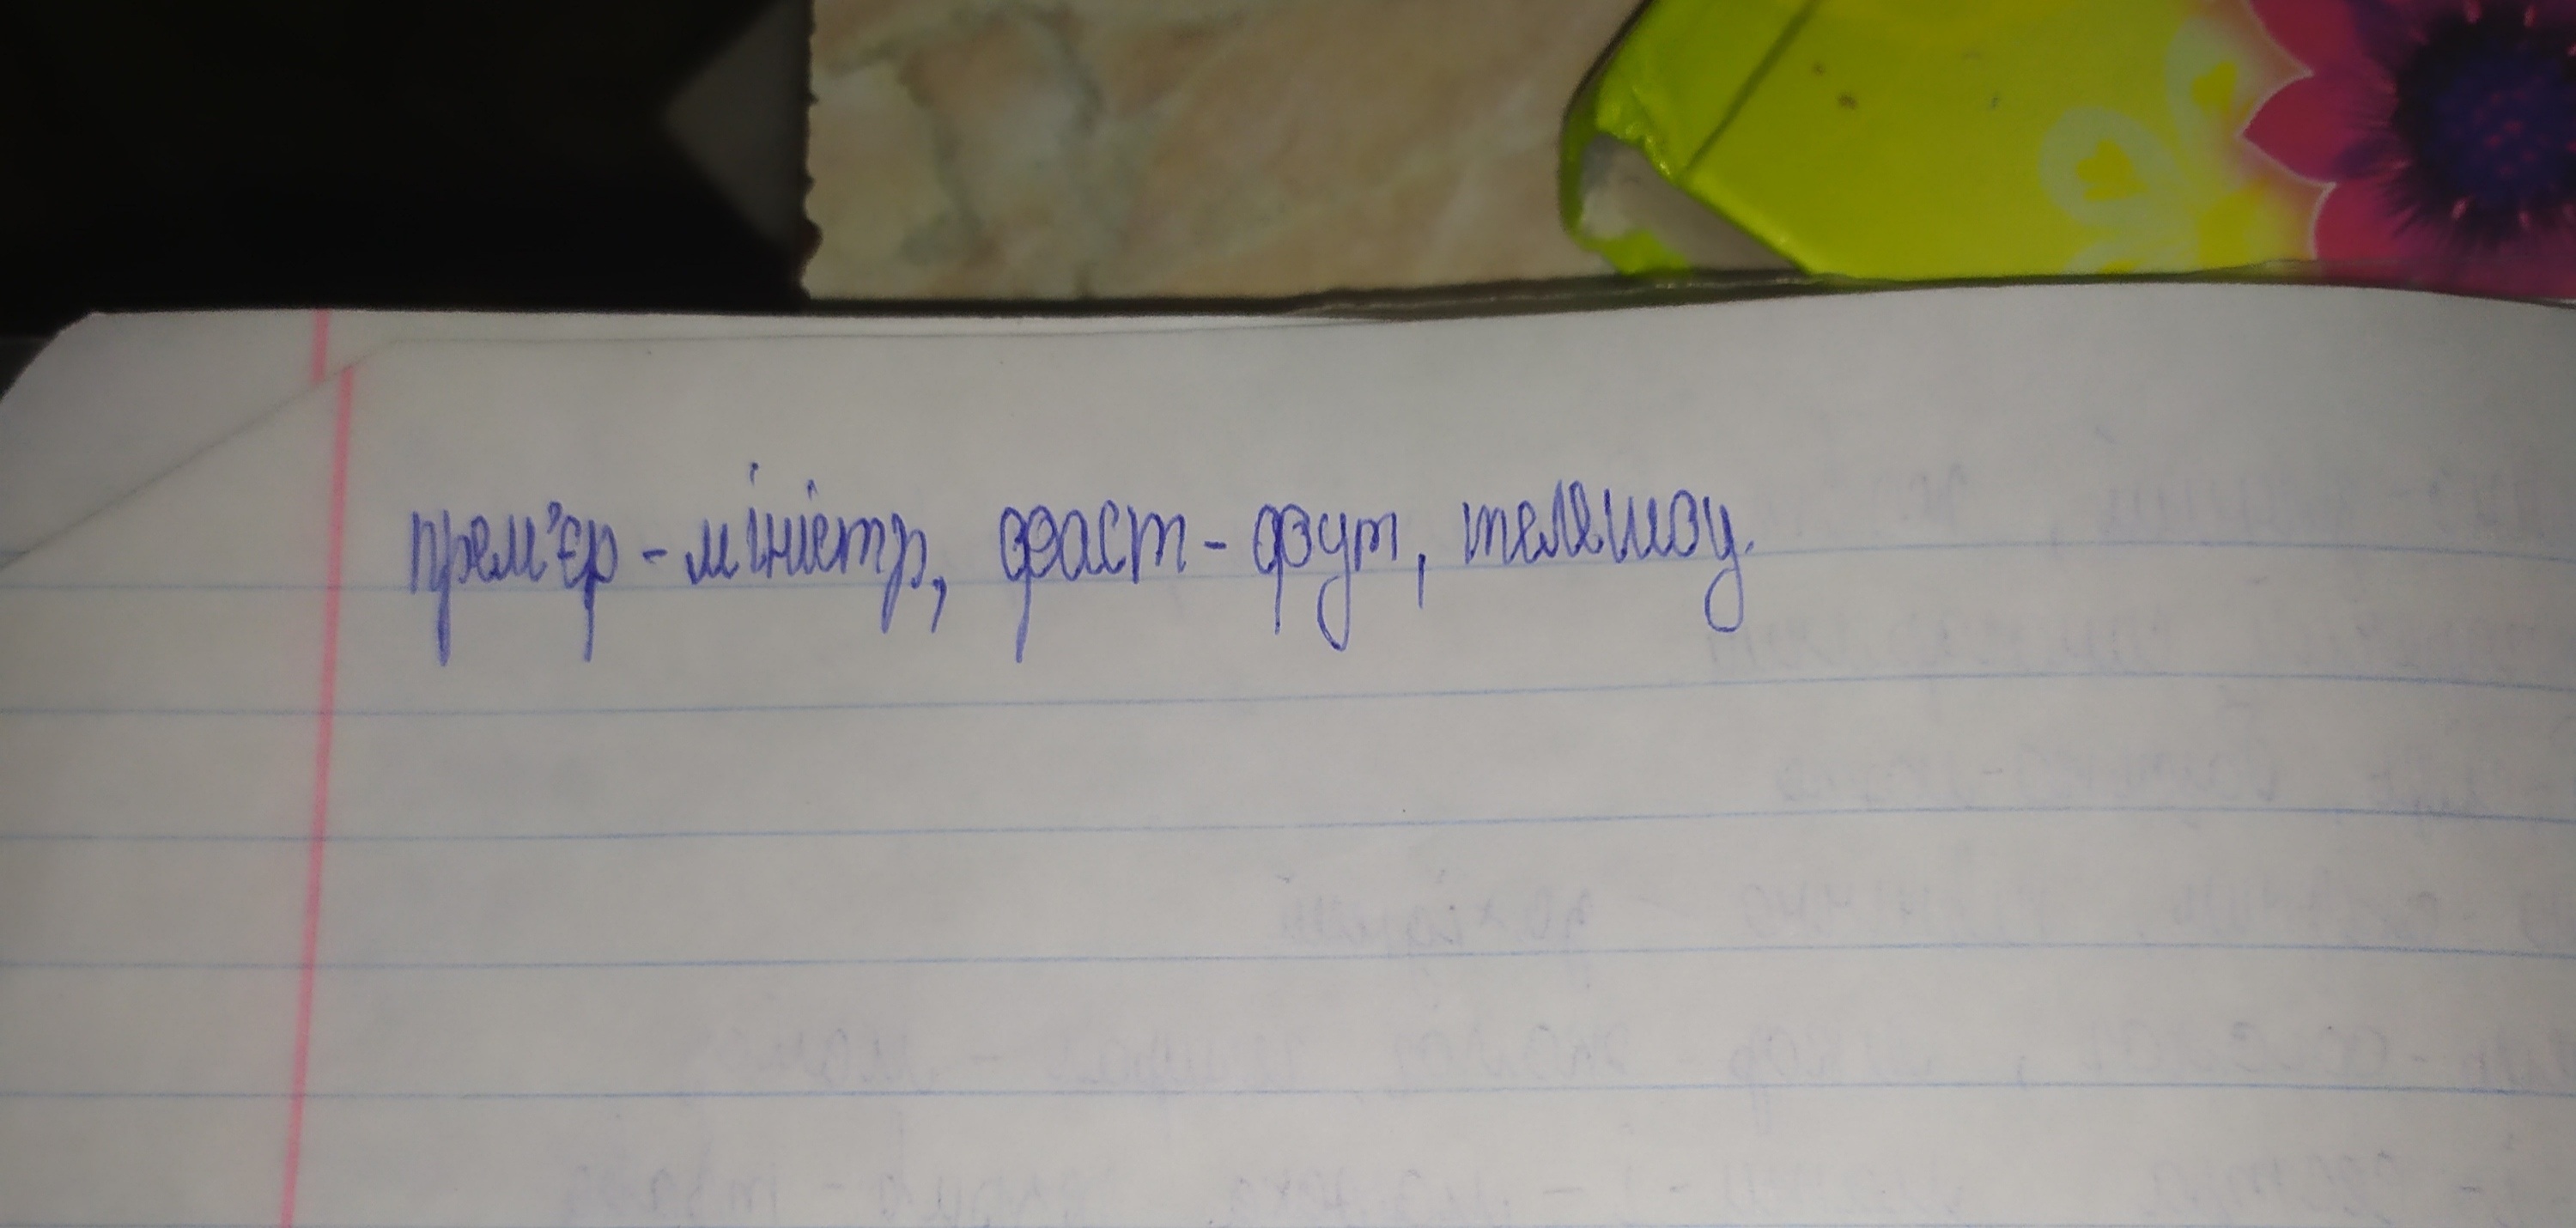 прем'єр - міністр, фаст - фут, телешоу.